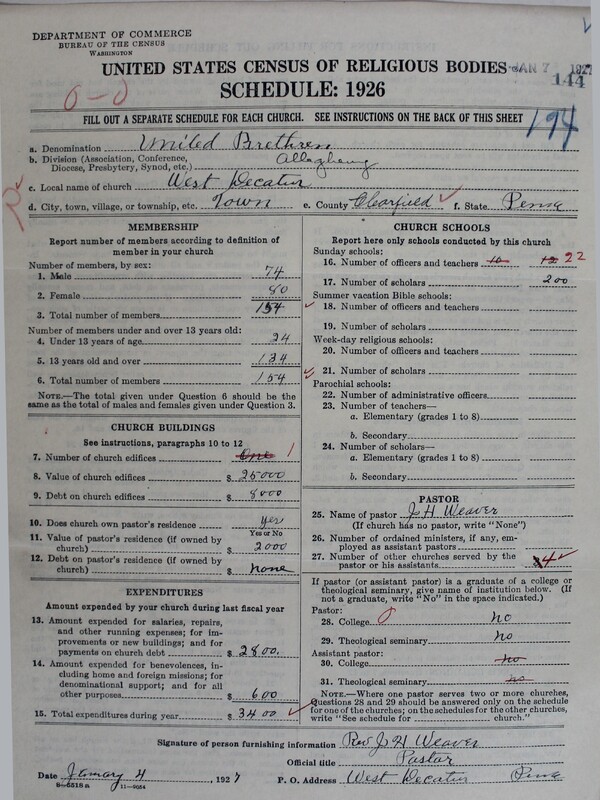 DEPARTMENT OF COMMERCE
BUREAU OF THE CENSUS
WASHINGTON
JAN 7 1927
144
UNITED STATES CENSUS OF RELIGIOUS BODIES
SCHEDULE: 1926
FILL OUT A SEPARATE SCHEDULE FOR EACH CHURCH. SEE INSTRUCTIONS ON THE BACK OF THIS SHEET
194
a. Denomination United Brethren
b. Division (Association, Conference, Diocese, Presbytery, Synod, etc.) Allegheny
c. Local name of church West Decatur
d. City, town, village, or township, etc. Town e. County Clearfield f. State Penna
MEMBERSHIP
Report number of members according to definition of
member in your church
Number of members, by sex:
1. Male 74
2. Female 80
3. Total number of members 154
Number of members under and over 13 years old:
4. Under 13 years of age 24
5. 13 years old and over 134
6. Total number of members 154
NOTE.—The total given under Question 6 should be
same as the total of males and females given under Question 3.
CHURCH BUILDINGS
See instructions, paragraphs 10 to 12
7. Number of church edifices One 1
8. Value of church edifices $ 25000
9. Debt on church edifices $ 8000
10. Does church own pastor's residence yes
Yes or No
11. Value of pastor's residence (if owned by
church) $ 2000
12. Debt on pastor's residence (if owned by
church) $ none
EXPENDITURES
Amount expended by your church during last fiscal year
13. Amount expended for salaries, repairs,
and other running expenses; for im-
provements or new buildings; and for
payments on church debt $ 2800.
14. Amount expended for benevolences, in-
cluding home and foreign missions; for
denominational support; and for all
other purposes $ 600
15. Total expenditures during year $ 3400
CHURCH SCHOOLS
Report here only schools conducted by this church
Sunday schools:
16. Number of officers and teachers 10 12 22
17. Number of scholars 200
Summer vacation Bible schools:
18. Number of officers and teachers
19. Number of scholars
Week-day religious schools:
20. Number of officers and teachers
21. Number of scholars
Parochial schools:
22. Number of administrative officers
23. Number of teachers—
a. Elementary (grades 1 to 8)
b. Secondary
24. Number of scholars—
a. Elementary (grades 1 to 8)
b. Secondary
PASTOR
25. Name of pastor J H Weaver
(If church has no pastor, write "None")
26. Number of ordained ministers, if any, em-
ployed as assistant pastors
27. Number of other churches served by the
pastor or his assistants 4
If pastor (or assistant pastor) is a graduate of a college or
theological seminary, give name of institution below. (If
not a graduate, write "No" in the space indicated.)
Pastor:
28. College no
29. Theological seminary no
Assistant pastor:
30. College no
31. Theological seminary no
NOTE.—Where one pastor serves two or more churches,
Questions 28 and 29 should be answered only on the schedule
for one of the churches; on the schedules for the other churches,
write "See schedule for ........ church."
Signature of person furnishing information Rev J H Weaver
Official title Pastor
Date January 4, 1927 P. O. Address West Decatur Penna
8—5518 a 11—9054